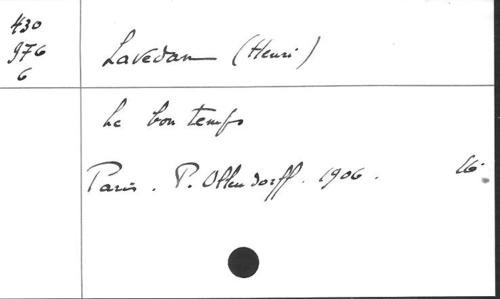 430
976
6
Lavedan (Henri)
Le bon temps
Paris. P. Ollendorff. 1906. 16°